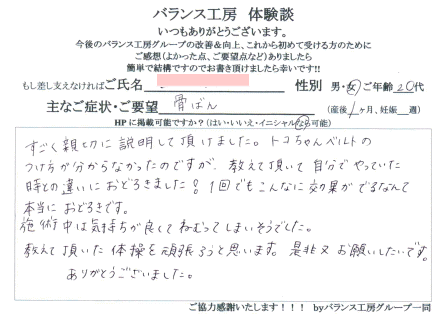 バランス工房 体験談
いつもありがとうございます。
今後のバランス工房グループの改善&向上、これから初めて受ける方のために
ご感想(よかった点、ご要望点など)ありましたら
簡単で結構ですのでお書き頂けましたら幸いです!!
もし差し支えなければご氏名 性別 男・女 ご年齢 20代
主なご症状・ご要望 骨ばん (産後 1ヶ月、妊娠 週)
HPに掲載可能ですか?(はい・いいえ・イニシャルなら可能)
すごく親切に説明して頂けました。トコちゃんベルトの
つけ方が分からなかったのですが、教えて頂いて自分でやっていた
時との違いにおどろきました!1回でもこんなに効果がでるなんて
本当におどろきです。
施術中は気持ちが良くてねむってしまいそうでした。
教えて頂いた体操を頑張ろうと思います。是非又お願いしたいです。
ありがとうございました。
ご協力感謝いたします!!! byバランス工房グループ一同